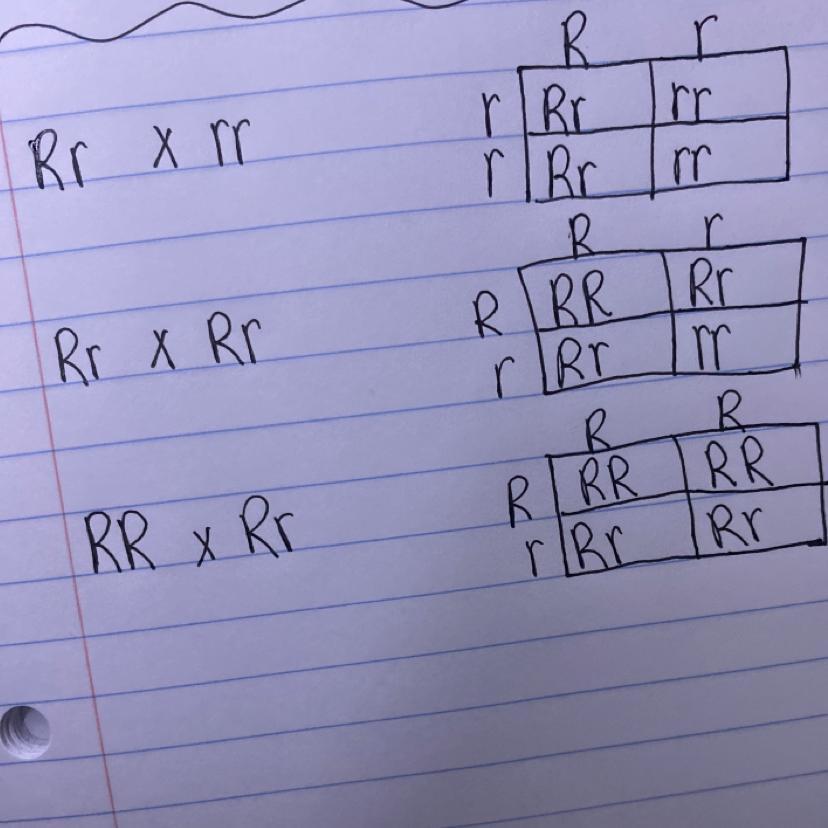 R r
r Rr rr
Rr x rr
r Rr rr
R r
R RR Rr
Rr x Rr
r Rr rr
R R
R RR RR
RR x Rr
r Rr Rr